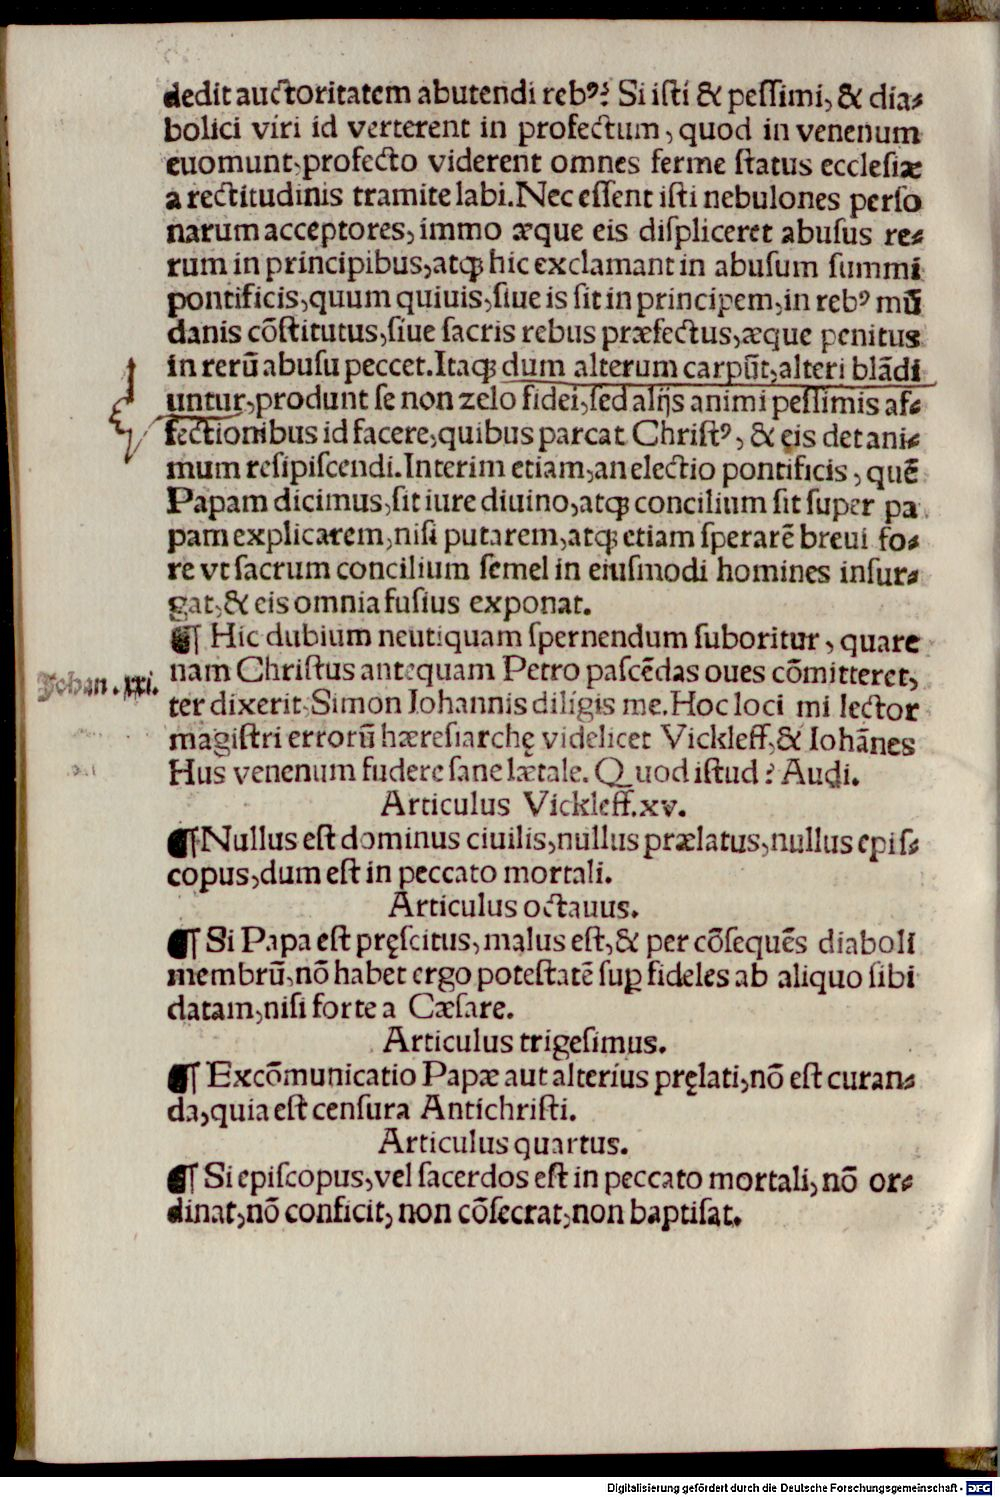 dedit auctoritatem abutendi rebꝰ? Si iſti & peſſimi, & dia⸗
bolici viri id verterent in profectum, quod in venenum
euomunt, profecto viderent omnes ferme ſtatus eccleſiæ
a rectitudinis tramite labi. Nec eſſent iſti nebulones perſo
narum acceptores, immo æque eis diſpliceret abuſus re⸗
rum in principibus, atqꝫ hic exclamant in abuſum ſummi
pontificis, quum quiuis, ſiue is ſit in principem, in rebꝰ mū
danis cōſtitutus, ſiue ſacris rebus præfectus, æque penitus
in rerū abuſu peccet. Itaqꝫ dum alterum carpūt, alteri blādi
untur, produnt ſe non zelo fidei, ſed alijs animi peſſimis af⸗
fectionibus id facere, quibus parcat Chriſtꝰ, & eis det ani⸗
mum reſipiſcendi. Interim etiam, an electio pontificis, quē
Papam dicimus, ſit iure diuino, atqꝫ concilium ſit ſuper pa
pam explicarem, niſi putarem, atqꝫ etiam ſperarē breui fo⸗
re vt ſacrum concilium ſemel in eiuſmodi homines inſur⸗
gat, & eis omnia fuſius exponat.
¶ Hic dubium neutiquam ſpernendum ſuboritur, quare
nam Chriſtus antequam Petro paſcēdas oues cōmitteret,
Johan. xxi.
ter dixerit, Simon Iohannis diligis me. Hoc loci mi lector
magiſtri errorū hæreſiarchę videlicet Vickleff, & Iohānes
Hus venenum fudere ſane lætale. Quod iſtud? Audi.
Articulus Vickleff. xv.
¶ Nullus eſt dominus ciuilis, nullus prælatus, nullus epiſ⸗
copus, dum eſt in peccato mortali.
Articulus octauus.
¶ Si Papa eſt pręſcitus, malus eſt, & per cōſequēs diaboli
membrū, nō habet ergo poteſtatē ſuꝑ fideles ab aliquo ſibi
datam, niſi forte a Cæſare.
Articulus trigeſimus.
¶ Excōmunicatio Papæ aut alterius pręlati, nō eſt curan⸗
da, quia eſt cenſura Antichriſti.
Articulus quartus.
¶ Si epiſcopus, vel ſacerdos eſt in peccato mortali, nō or⸗
dinat, nō conficit, non cōſecrat, non baptiſat.
Digitalisierung gefördert durch die Deutsche Forschungsgemeinschaft - DFG